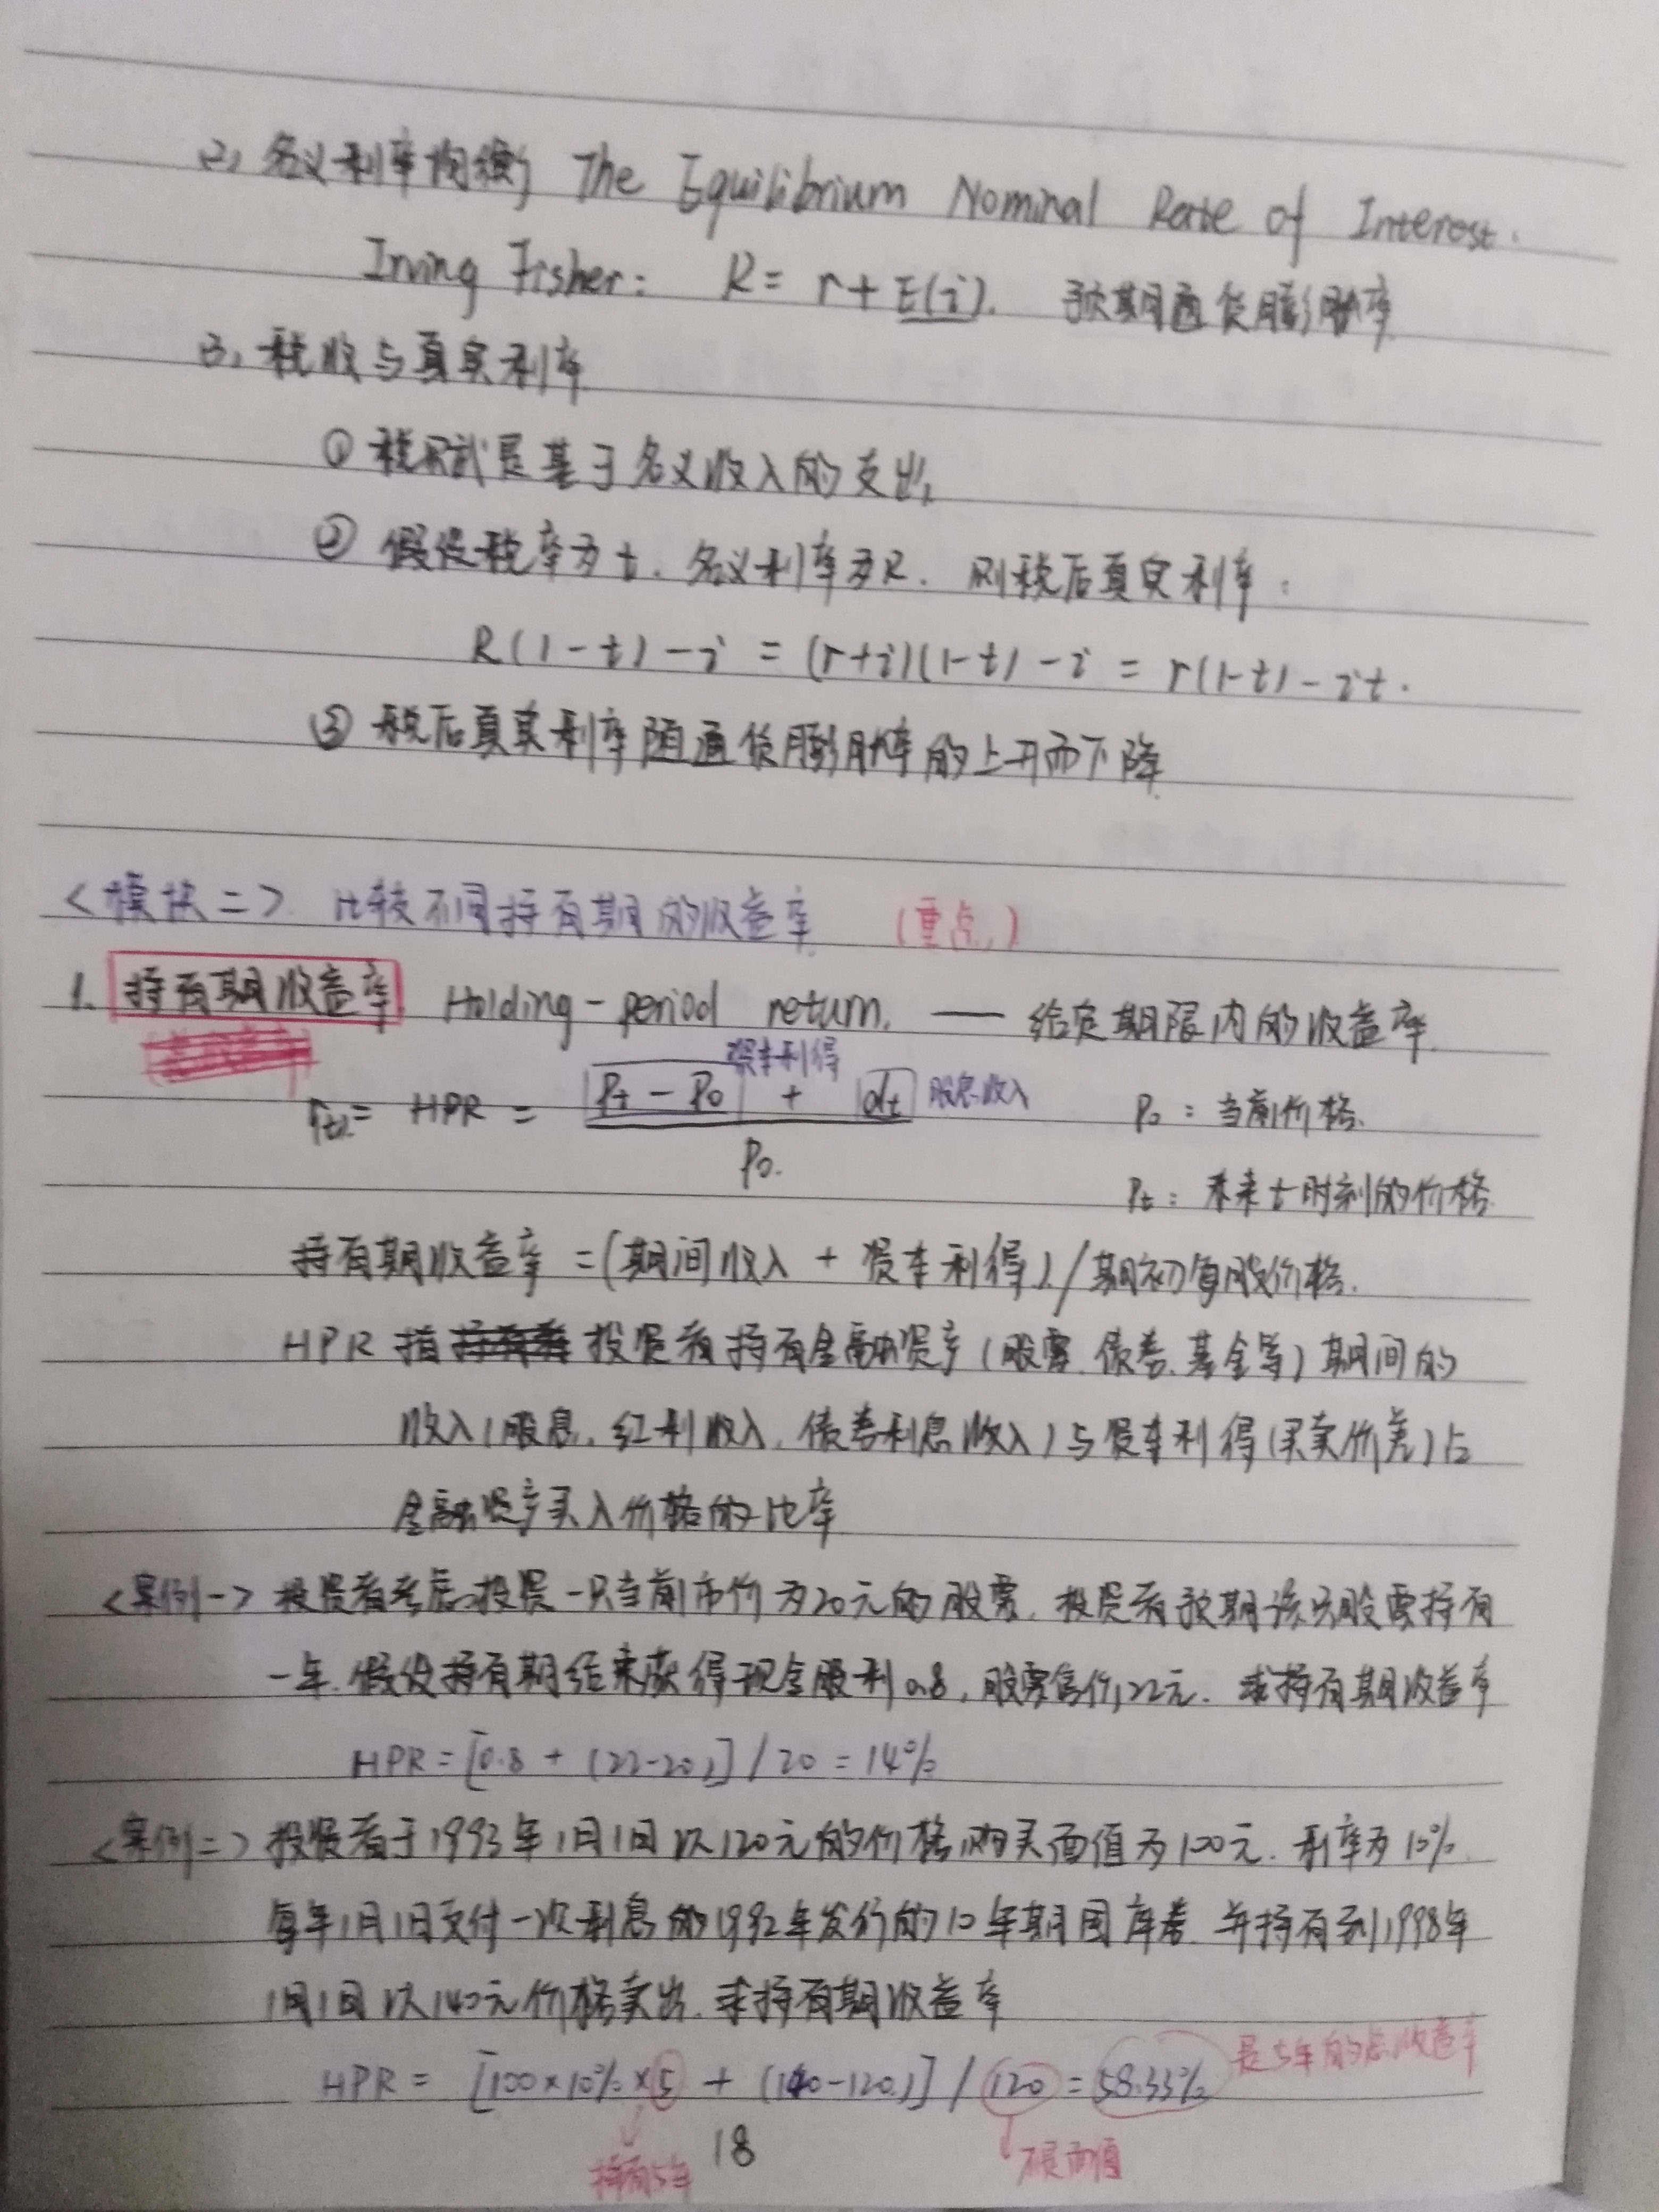 2, 名义利率均衡 The Equilibrium Nominal Rate of Interest.
Irving Fisher: R = r + E(i). 预期通货膨胀率
3, 税收与真实利率
① 税赋是基于名义收入的支出
② 假设税率为t. 名义利率为R. 则税后真实利率:
R(1-t)-i = (r+i)(1-t)-i = r(1-t)-it.
③ 税后真实利率随通货膨胀率的上升而下降
<模块二> 比较不同持有期的收益率 (重点)
1. 持有期收益率 Holding-period return. —— 给定期限内的收益率
资本利得
= HPR = Pt - P0 + dt 股息收入 P0: 当前价格.
P0. Pt: 未来t时刻的价格
持有期收益率 = (期间收入 + 资本利得) / 期初每股价格.
HPR 指 投资者持有金融资产(股票.债券.基金等)期间的
收入(股息.红利收入.债券利息收入)与资本利得(买卖价差)占
金融资产买入价格的比率
<案例一> 投资者考虑投资一只当前市价为20元的股票. 投资者预期该只股票持有
一年. 假设持有期结束获得现金股利0.8, 股票售价22元. 求持有期收益率
HPR = [0.8 + (22-20)] / 20 = 14%
<案例二> 投资者于1993年1月1日以120元的价格购买面值为100元. 利率为10%.
每年1月1日支付一次利息的1992年发行的10年期国库券. 并持有到1998年
1月1日以140元价格卖出. 求持有期收益率
HPR = [100×10%×5 + (140-120)] / 120 = 58.33% 是5年的总收益率
持有5年 18 不是面值